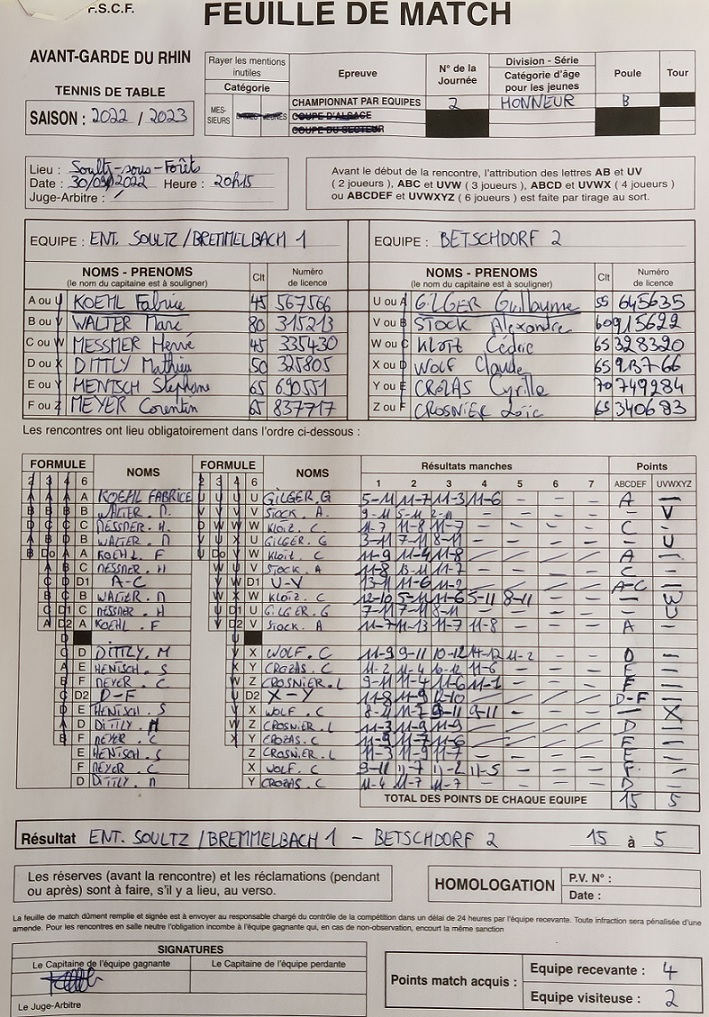 F.S.C.F.
FEUILLE DE MATCH
AVANT-GARDE DU RHIN
TENNIS DE TABLE
SAISON : 2022 / 2023
Rayer les mentions inutiles
Catégorie
MES-SIEURS
Epreuve
N° de la Journée
Division - Série
Catégorie d'âge pour les jeunes
Poule
Tour
CHAMPIONNAT PAR EQUIPES 2 HONNEUR B
COUPE D'ALSACE
COUPE DU SECTEUR
Lieu : Soultz-sous-Forêts
Date : 30/09/2022 Heure : 20h15
Juge-Arbitre : /
Avant le début de la rencontre, l'attribution des lettres AB et UV
( 2 joueurs ), ABC et UVW ( 3 joueurs ), ABCD et UVWX ( 4 joueurs )
ou ABCDEF et UVWXYZ ( 6 joueurs ) est faite par tirage au sort.
EQUIPE : ENT. SOULTZ / BREMMELBACH 1
EQUIPE : BETSCHDORF 2
NOMS - PRENOMS (le nom du capitaine est à souligner) Clt Numéro de licence
A ou U KOEHL Fabrice 45 567566
B ou V WALTER Marc 80 315213
C ou W MESSMER Hervé 45 335430
D ou X DITTLY Mathieu 50 325805
E ou Y HENTSCH Stéphane 65 690551
F ou Z MEYER Corentin 65 837717
NOMS - PRENOMS (le nom du capitaine est à souligner) Clt Numéro de licence
U ou A GILGER Guillaume 55 645635
V ou B STOCK Alexandre 60 915622
W ou C KLOTZ Cédric 65 328320
X ou D WOLF Claude 65
Y ou E CROZAS Cyrille 70 749284
Z ou F CROSNIER Loïc 65 340683
Les rencontres ont lieu obligatoirement dans l'ordre ci-dessous :
FORMULE NOMS FORMULE NOMS Résultats manches Points
2 3 4 6 2 3 4 6 1 2 3 4 5 6 7 ABCDEF UVWXYZ
A KOEHL FABRICE U GILGER.G 5-11 11-7 11-3 11-6 - - - A -
B WALTER.M. V STOCK.A. 9-11 5-11 - - - - - V
C MESSMER.H. W KLOTZ.C 11-7 11-8 11-7 - - - - C -
B WALTER.M U GILGER.G 3-11 7-11 8-11 - - - - - U
A KOEHL.F W KLOTZ.C 11-9 11-4 11-8 A -
C MESSMER.H V STOCK.A 11-8 13-11 11-2 - - - - C -
D1 A-C D1 U-Y 13-11 11-6 11-2 A-C -
B WALTER.M W KLOTZ.C 12-10 5-11 11-6 5-11 8-11 - - - W
C MESSMER.H U GILGER.G 7-11 11-7 8-11 - - - - - U
A KOEHL.F V STOCK.A 11-7 11-13 11-7 11-8 - - - A -
D DITTLY.M X WOLF.C 11-9 9-11 10-12 14-12 11-2 - - D -
E HENTSCH.S Y CROZAS.C 11-2 11-4 10-12 11-6 - - - E -
F MEYER.C Z CROSNIER.L 9-11 11-4 11-6 11-1 - - - F -
D2 D-F D2 X-Y 11-8 11-9 12-10 D-F -
E HENTSCH.S X WOLF.C 8-11 11-7 9-11 9-11 - - - - X
D DITTLY.M Z CROSNIER.L 11-3 11-9 11-9 D -
F MEYER.C Y CROZAS.C 11-9 11-7 11-6 F -
E HENTSCH.S Z CROSNIER.L 11-3 11-9 11-8 - - - - E -
F MEYER.C X WOLF.C 9-11 11-7 11-2 11-5 - - - F -
D DITTLY.M Y CROZAS.C 11-4 11-7 11-7 - - - - D -
TOTAL DES POINTS DE CHAQUE EQUIPE 15 5
Résultat ENT. SOULTZ / BREMMELBACH 1 - BETSCHDORF 2 15 à 5
Les réserves (avant la rencontre) et les réclamations (pendant
ou après) sont à faire, s'il y a lieu, au verso.
HOMOLOGATION
P.V. N° :
Date :
La feuille de match dûment remplie et signée est à envoyer au responsable chargé du contrôle de la compétition dans un délai de 24 heures par l'équipe recevante. Toute infraction sera pénalisée d'une
amende. Pour les rencontres en salle neutre l'obligation incombe à l'équipe gagnante qui, en cas de non-observation, encourt la même sanction
SIGNATURES
Le Capitaine de l'équipe gagnante
Le Capitaine de l'équipe perdante
Le Juge-Arbitre
Points match acquis :
Equipe recevante : 4
Equipe visiteuse : 2